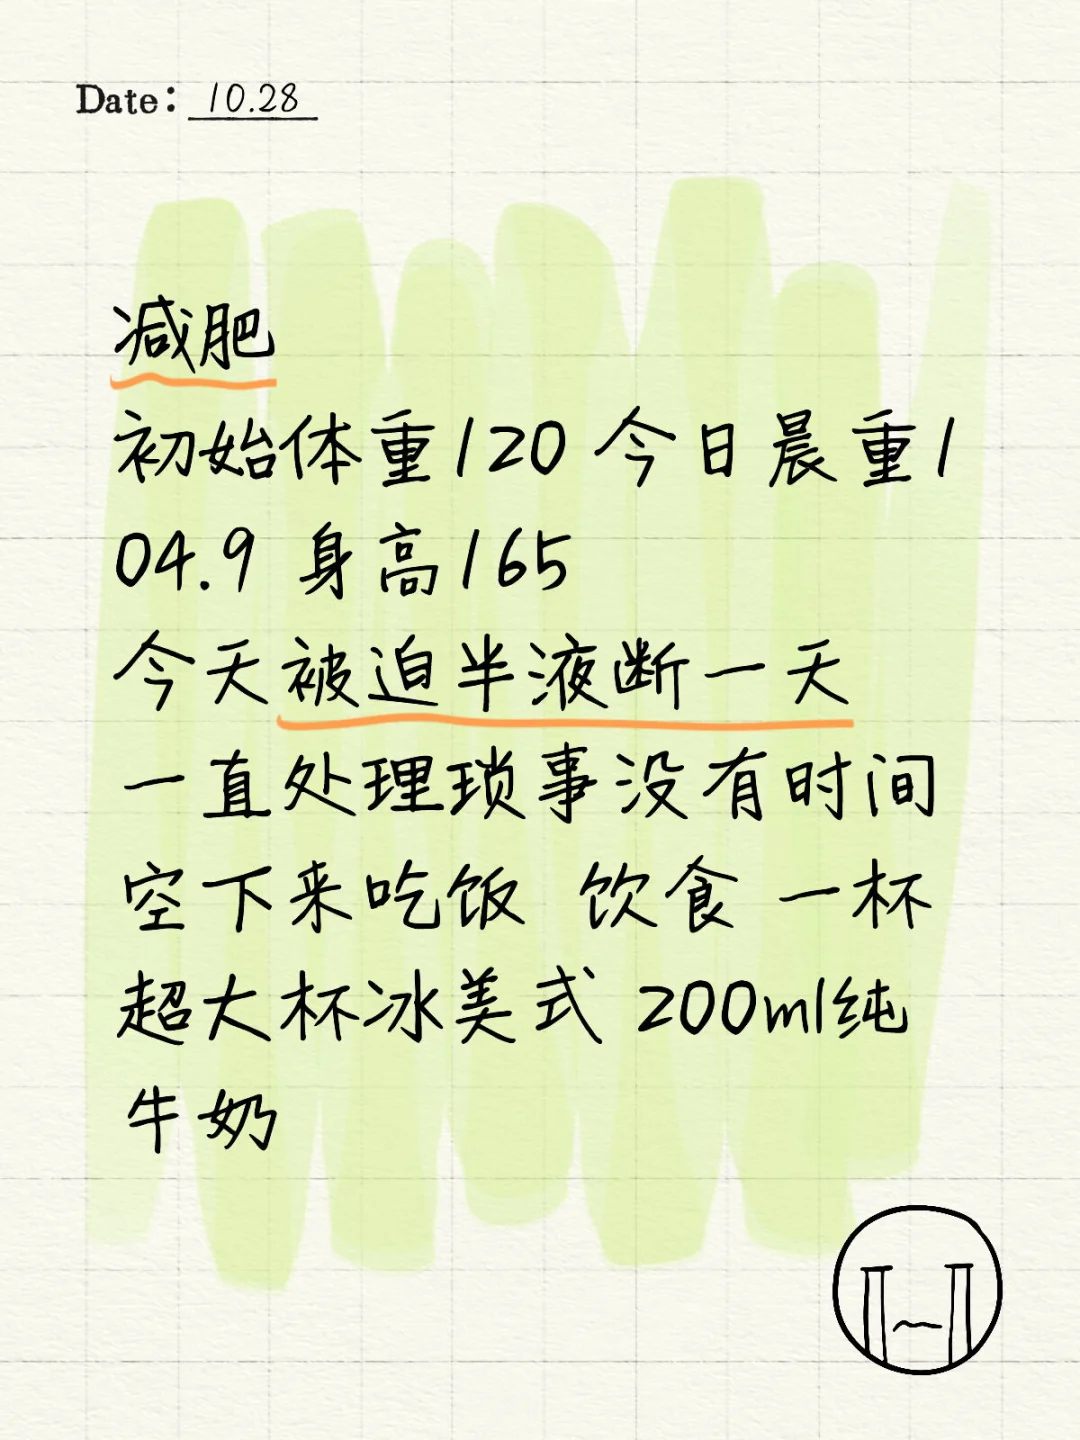 Date: 10.28
减肥
初始体重120 今日晨重1
04.9 身高165
今天被迫半液断一天
一直处理琐事没有时间
空下来吃饭 饮食 一杯
超大杯冰美式 200ml纯
牛奶